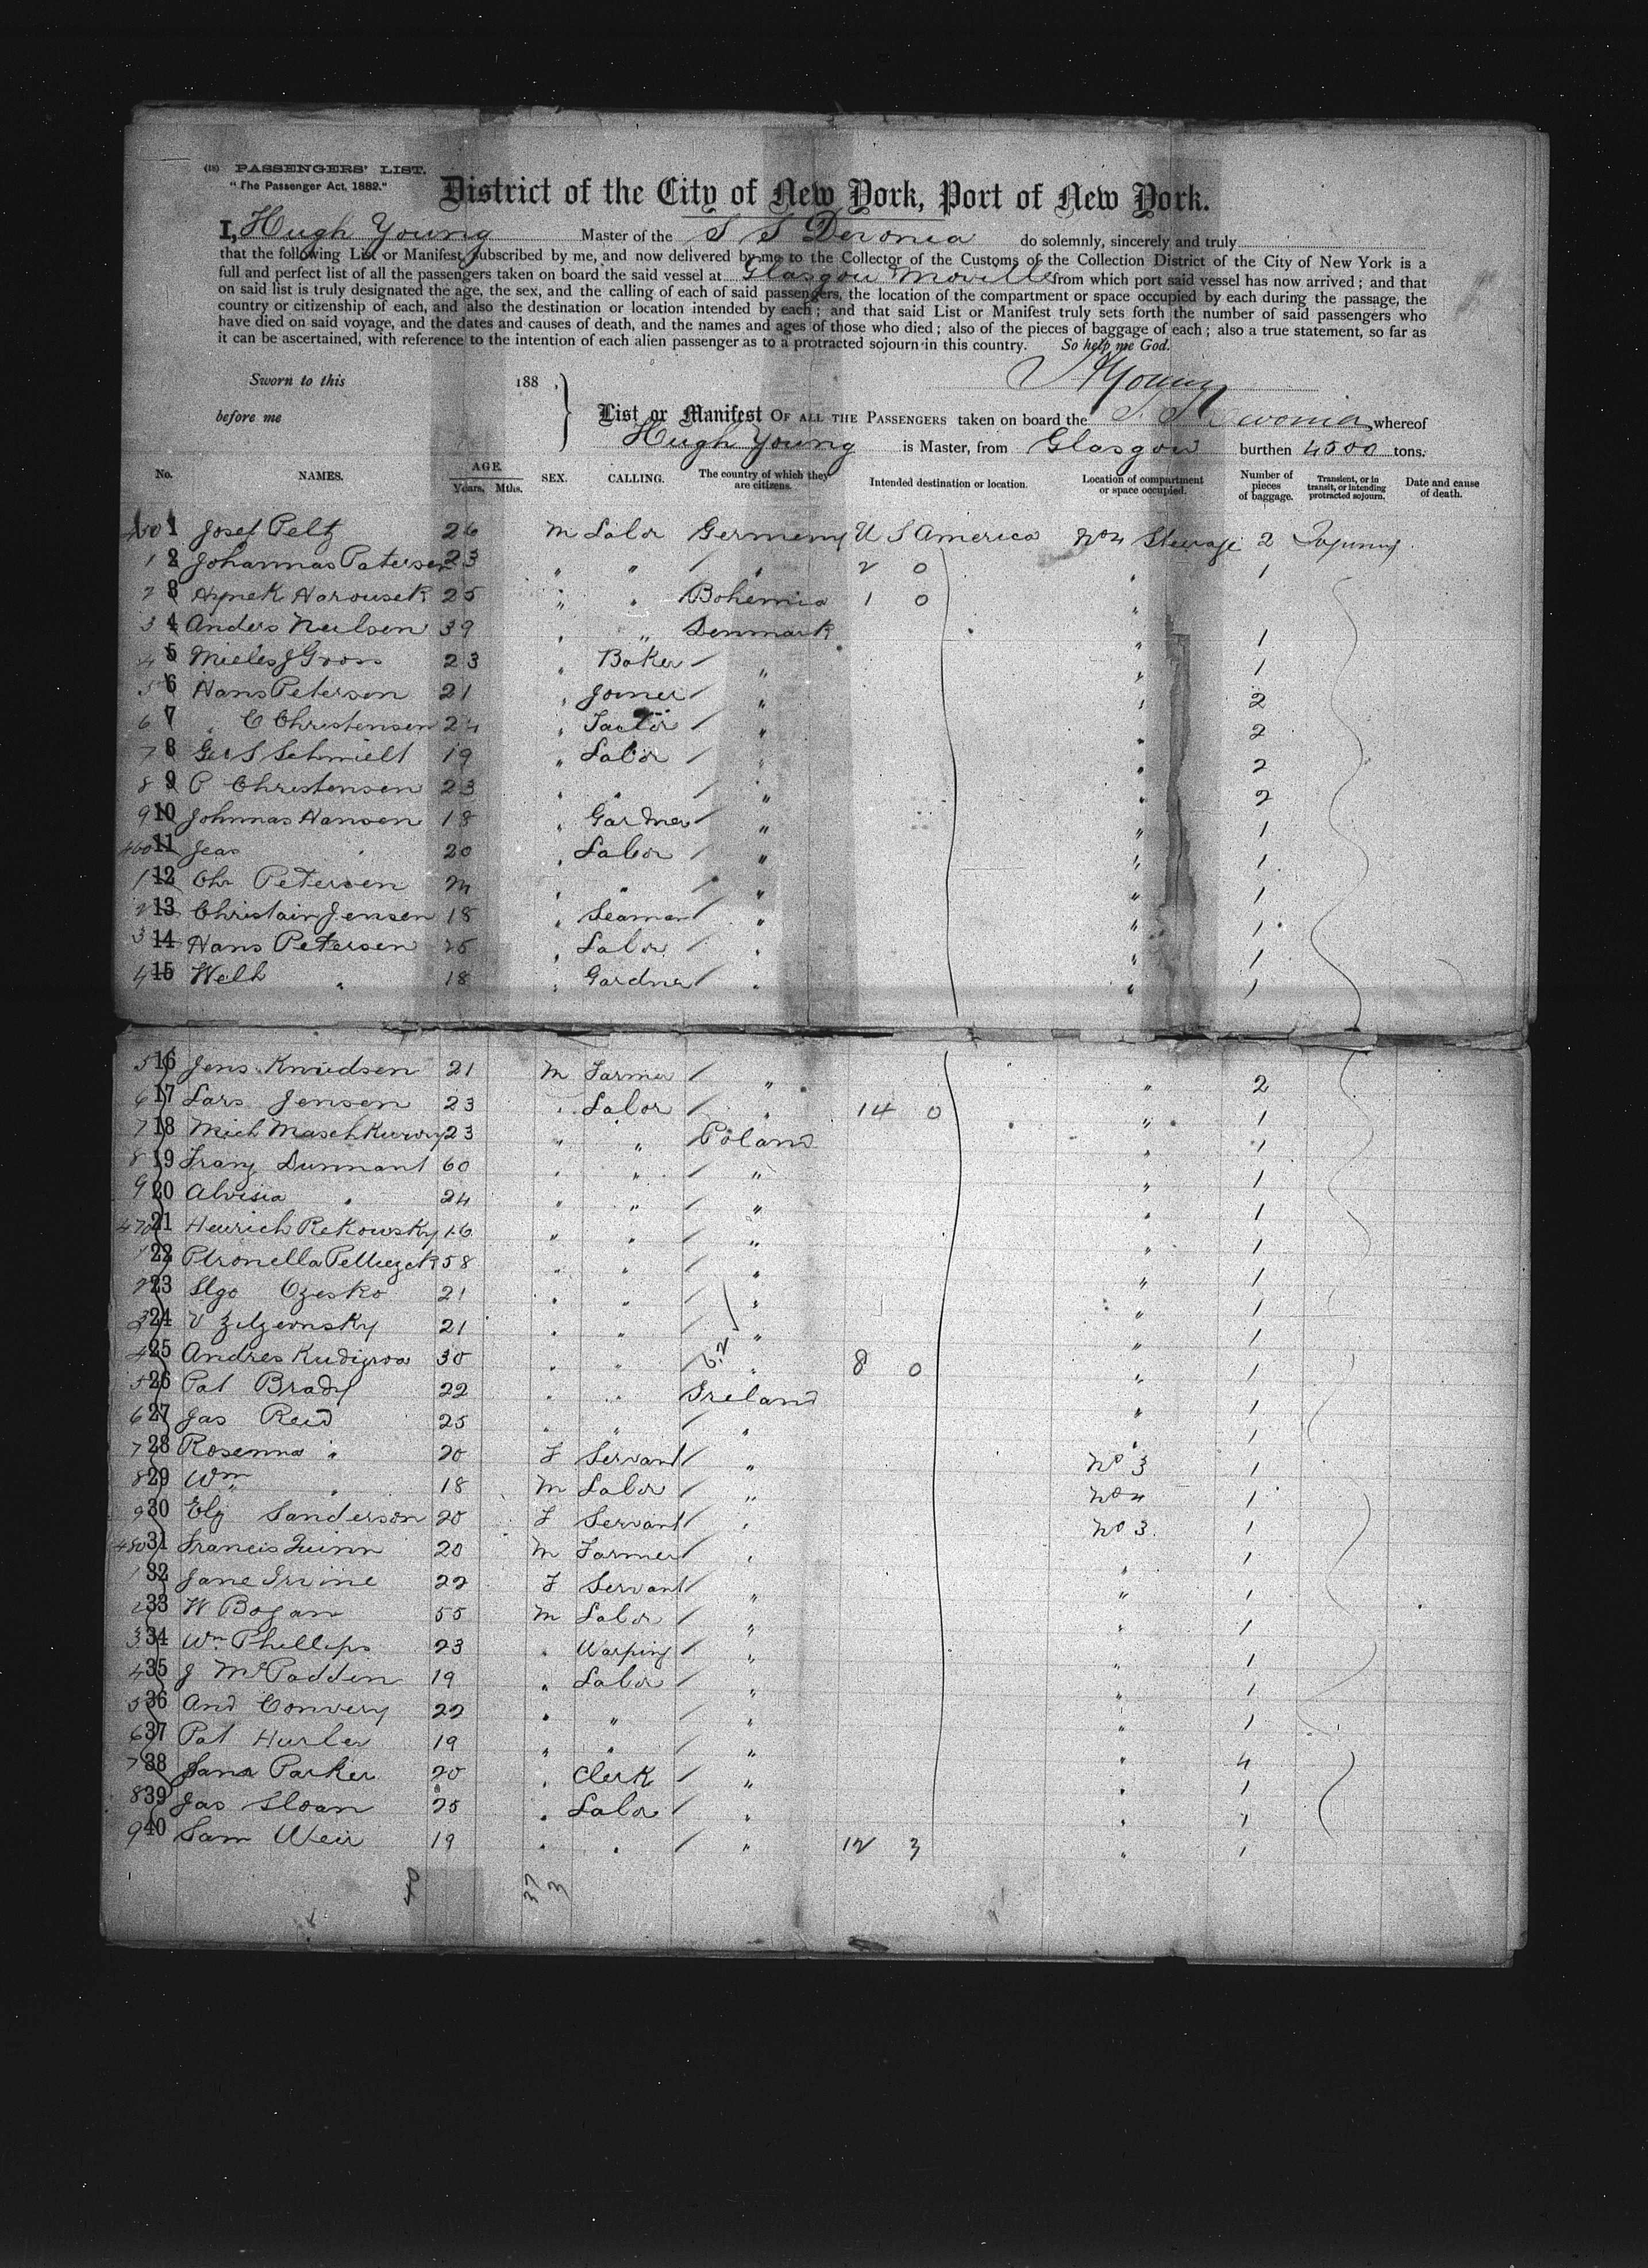 (18) PASSENGERS' LIST.
"The Passenger Act, 1882."
District of the City of New York, Port of New York.
I, Hugh Young Master of the S S Devonia do solemnly, sincerely and truly
that the following List or Manifest, subscribed by me, and now delivered by me to the Collector of the Customs of the Collection District of the City of New York is a
full and perfect list of all the passengers taken on board the said vessel at Glasgow Moville from which port said vessel has now arrived; and that
on said list is truly designated the age, the sex, and the calling of each of said passengers, the location of the compartment or space occupied by each during the passage, the
country or citizenship of each, and also the destination or location intended by each; and that said List or Manifest truly sets forth the number of said passengers who
have died on said voyage, and the dates and causes of death, and the names and ages of those who died; also of the pieces of baggage of each; also a true statement, so far as
it can be ascertained, with reference to the intention of each alien passenger as to a protracted sojourn in this country. So help me God.
Sworn to this 188 .
H Young
before me
List or Manifest OF ALL THE PASSENGERS taken on board the S. S. Devonia whereof
Hugh Young is Master, from Glasgow burthen 4500 tons.
No. NAMES. AGE. Years. Mths. SEX. CALLING. The country of which they are citizens. Intended destination or location. Location of compartment or space occupied. Number of pieces of baggage. Transient, or in transit, or intending protracted sojourn. Date and cause of death.
1 Josef Peltz 26 M Labor Germany U S America No 4 Steerage 2
1 2 Johannas Petersen 23 " " / " 2 0 " 1
2 3 Hynek Harousek 25 " " Bohemia 1 0 "
3 4 Anders Neilsen 39 " " Denmark " 1
4 5 23 " Baker / " " 1
5 6 Hans Peterson 21 " Joiner / " " 2
6 7 " C Christensen 24 " / " " 2
7 8 19 " Labor / " " 2
8 9 P Christensen 23 " " / " " 2
9 10 Hansen 18 " Gardner / " " 1
460 11 " 20 " Labor / " " 1
1 12 Chr Petersen " " / " " 1
2 13 Christain Jensen 18 " Seaman / " " 1
3 14 Hans Petersen 25 " Labor / " " 1
4 15 Welh " 18 " Gardner / " " 1
5 16 Jens Knudsen 21 M Farmer / " " 2
6 17 Lars Jensen 23 " Labor / " 14 0 " 1
7 18 Mich 23 " " Poland " 1
8 19 Franz Dunnant 60 " " / " " 1
9 20 " 24 " " / " " 1
470 21 Heinrich Rekowsky 16 " " / " " 1
1 22 58 " " / " " 1
2 23 21 " " / " " 1
3 24 V 21 " " / " " 1
4 25 Andres 30 " " / " 8 0 " 1
5 26 Pat Brady 22 " " Ireland " 1
6 27 Jas Reid 25 " " / " " 1
7 28 Rosenna " 20 F Servant / " No 3 1
8 29 Wm " 18 M Labor / " No 4 1
9 30 Elz Sanderson 20 F Servant / " No 3 1
480 31 Francis Quinn 20 M Farmer / " " 1
1 32 Jane Irvine 22 F Servant / " " 1
2 33 W Bogan 55 M Labor / " " 1
3 34 Wm Phillips 23 " Warping / " " 1
4 35 J McPadden 19 " Labor / " " 1
5 36 And Convery 22 " " / " " 1
6 37 Pat 19 " " / " " 4
7 38 Parker 20 " Clerk / " " 1
8 39 Jas Sloan 25 " Labor / " " 1
9 40 Sam Weir 19 " " / " 12 3 " 1
40 37 3